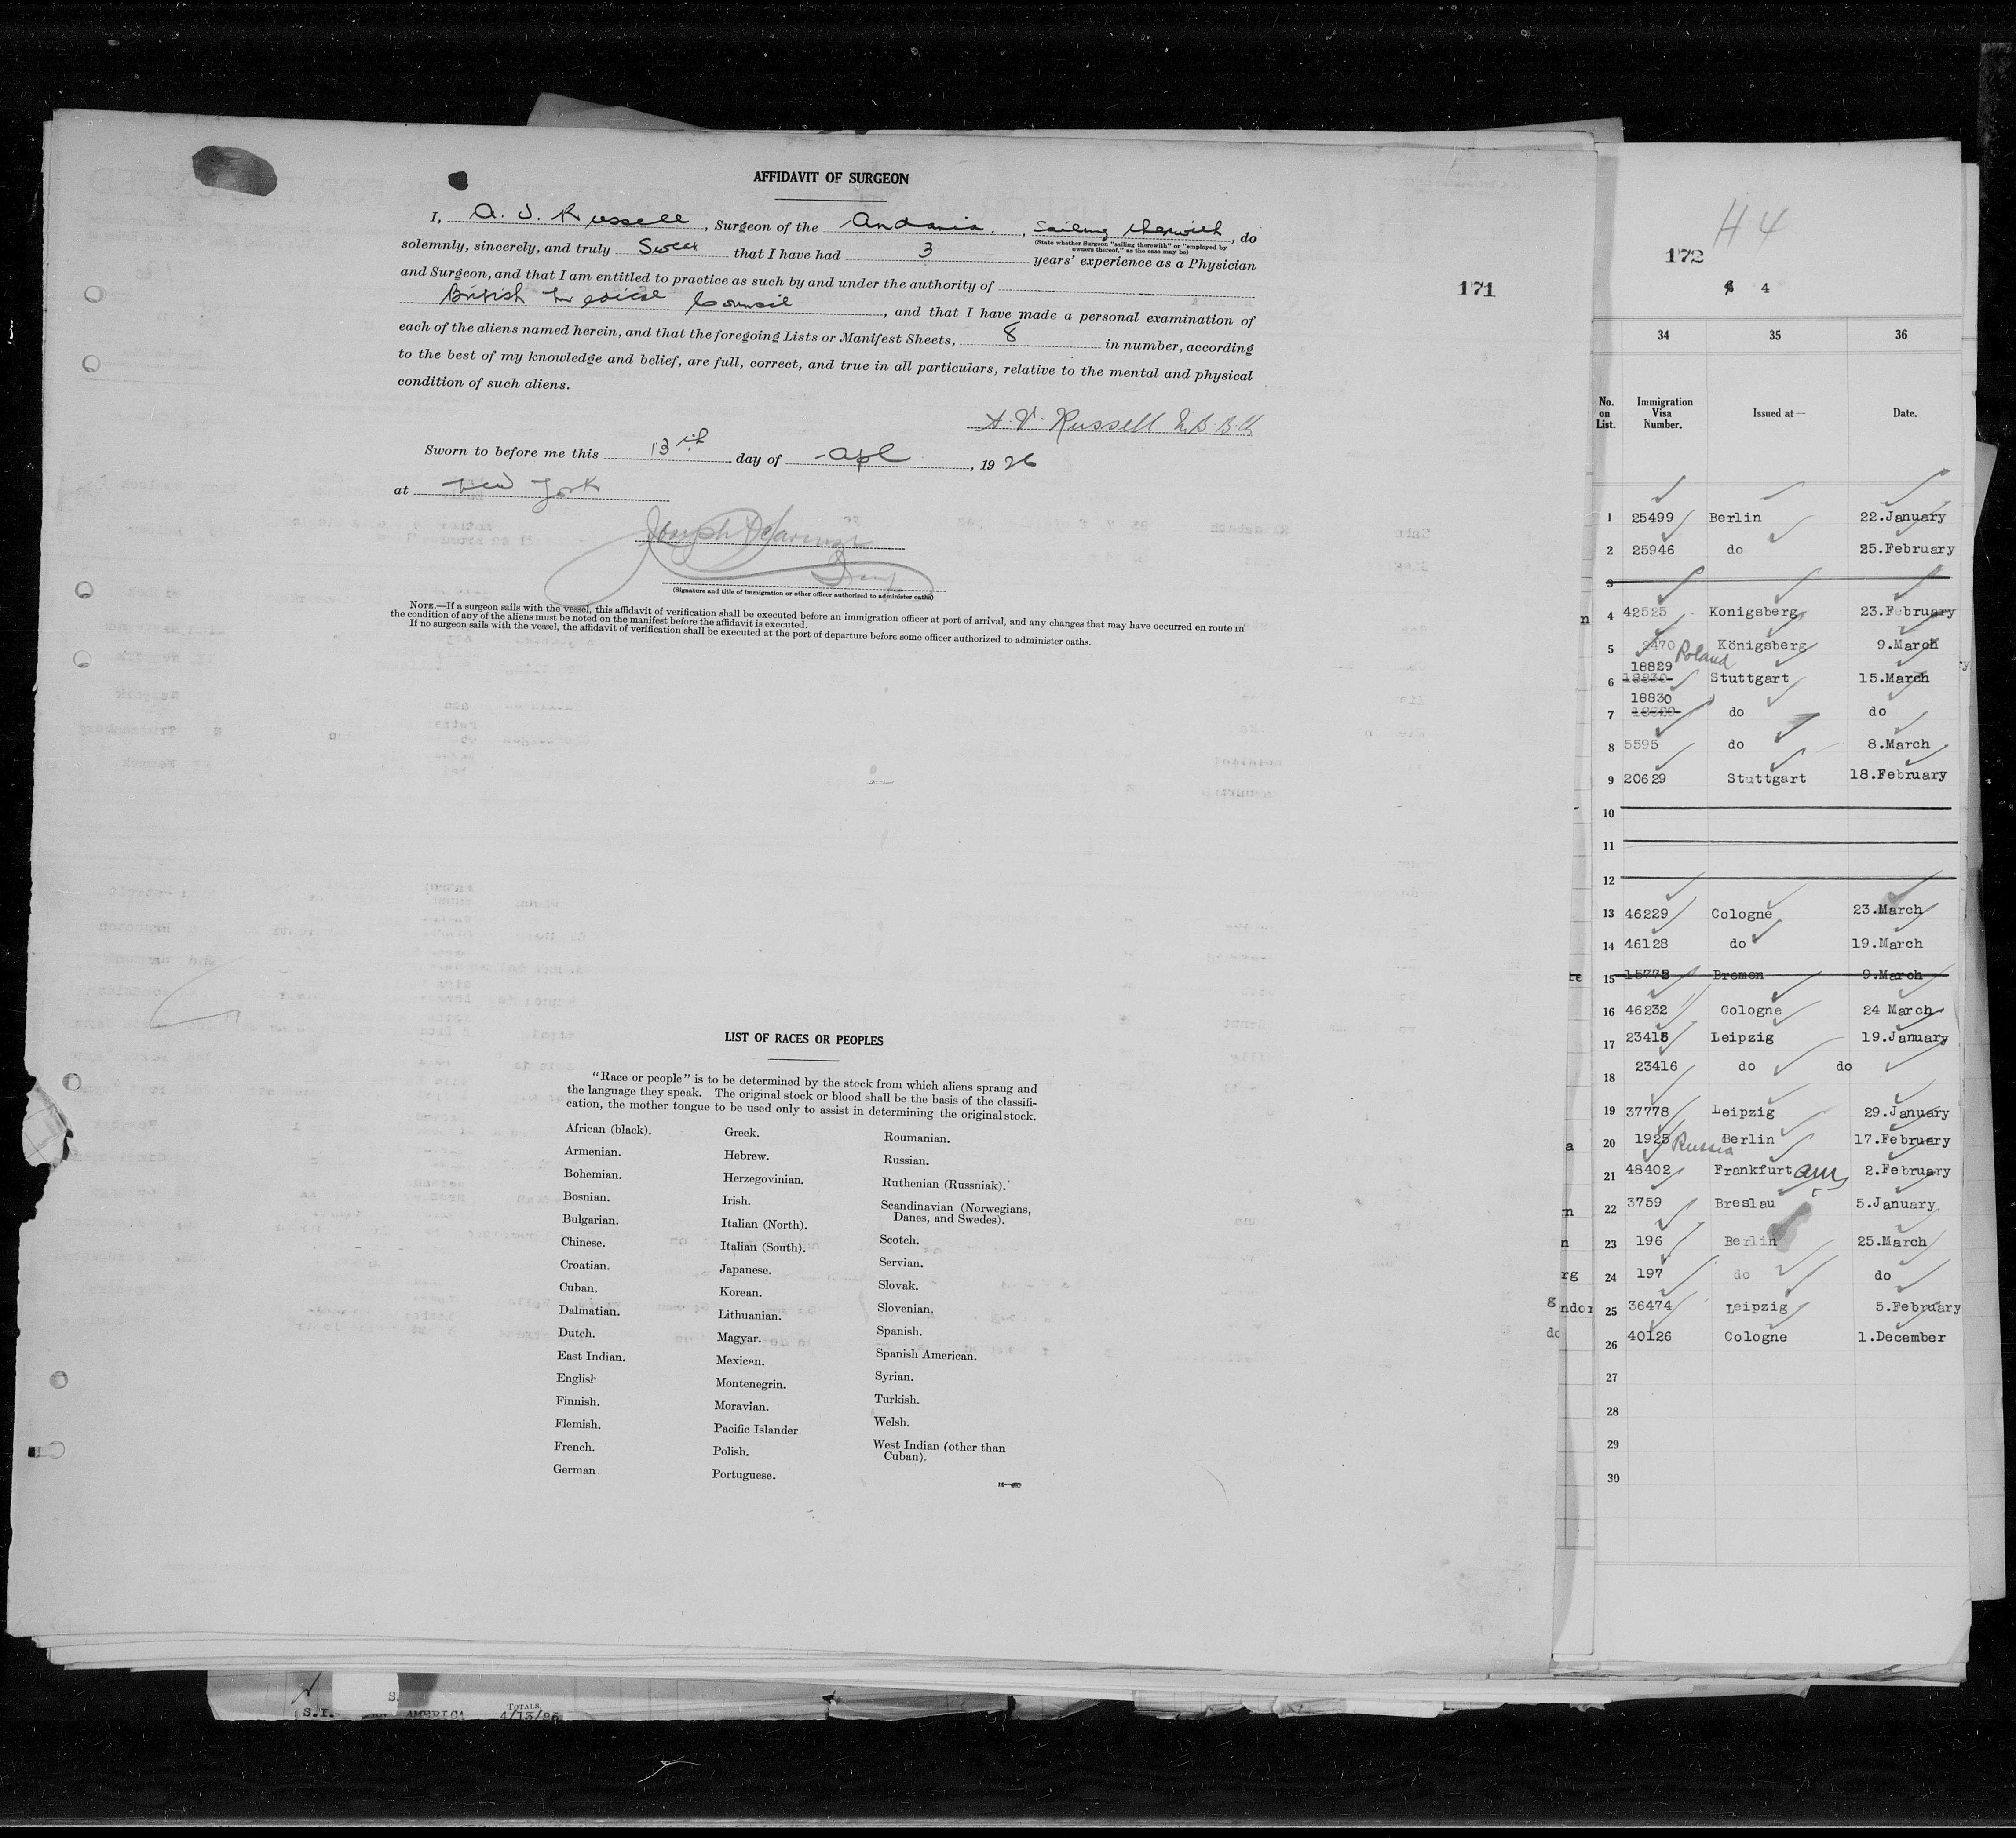 AFFIDAVIT OF SURGEON
I, A. J. Russell, Surgeon of the Andania, sailing therewith, do
(State whether Surgeon "sailing therewith" or "employed by
owners thereof," as the case may be)
solemnly, sincerely, and truly Swear that I have had 3 years' experience as a Physician
and Surgeon, and that I am entitled to practice as such by and under the authority of
British Medical Council, and that I have made a personal examination of
each of the aliens named herein, and that the foregoing Lists or Manifest Sheets, 8 in number, according
to the best of my knowledge and belief, are full, correct, and true in all particulars, relative to the mental and physical
condition of such aliens.
Russell M.B. B.Ch
Sworn to before me this 13th day of Apl, 1926
at New York
Joseph
(Signature and title of immigration or other officer authorized to administer oaths)
NOTE.—If a surgeon sails with the vessel, this affidavit of verification shall be executed before an immigration officer at port of arrival, and any changes that may have occurred en route in
the condition of any of the aliens must be noted on the manifest before the affidavit is executed.
If no surgeon sails with the vessel, the affidavit of verification shall be executed at the port of departure before some officer authorized to administer oaths.
171
LIST OF RACES OR PEOPLES
"Race or people" is to be determined by the stock from which aliens sprang and
the language they speak. The original stock or blood shall be the basis of the classifi-
cation, the mother tongue to be used only to assist in determining the original stock.
African (black).
Armenian.
Bohemian.
Bosnian.
Bulgarian.
Chinese.
Croatian.
Cuban.
Dalmatian.
Dutch.
East Indian.
English
Finnish.
Flemish.
French.
German
Greek.
Hebrew.
Herzegovinian.
Irish.
Italian (North).
Italian (South).
Japanese.
Korean.
Lithuanian.
Magyar.
Mexican.
Montenegrin.
Moravian.
Pacific Islander
Polish.
Portuguese.
Roumanian.
Russian.
Ruthenian (Russniak).
Scandinavian (Norwegians,
Danes, and Swedes).
Scotch.
Servian.
Slovak.
Slovenian.
Spanish.
Spanish American.
Syrian.
Turkish.
Welsh.
West Indian (other than
Cuban).
H4
172
4
34 35 36
No. on List. Immigration Visa Number. Issued at— Date.
1 25499 Berlin 22.January
2 25946 do 25.February
3
4 42525 Konigsberg 23.February
5 2470 Poland Königsberg 9.March
18829
6 18830 Stuttgart 15.March
18830
7 do do
8 5595 do 8.March
9 20629 Stuttgart 18.February
10
11
12
13 46229 Cologne 23.March
14 46128 do 19.March
15 15778 Bremen 9.March
16 46232 Cologne 24 March
17 23415 Leipzig 19.January
18 23416 do do
19 37778 Leipzig 29.January
20 1925 Russia Berlin 17.February
21 48402 Frankfurt am 2.February
22 3759 Breslau 5.January
23 196 Berlin 25.March
24 197 do do
25 36474 Leipzig 5.February
26 40126 Cologne 1.December
27
28
29
30
S.I. AMERICA
TOTALS
4/13/26